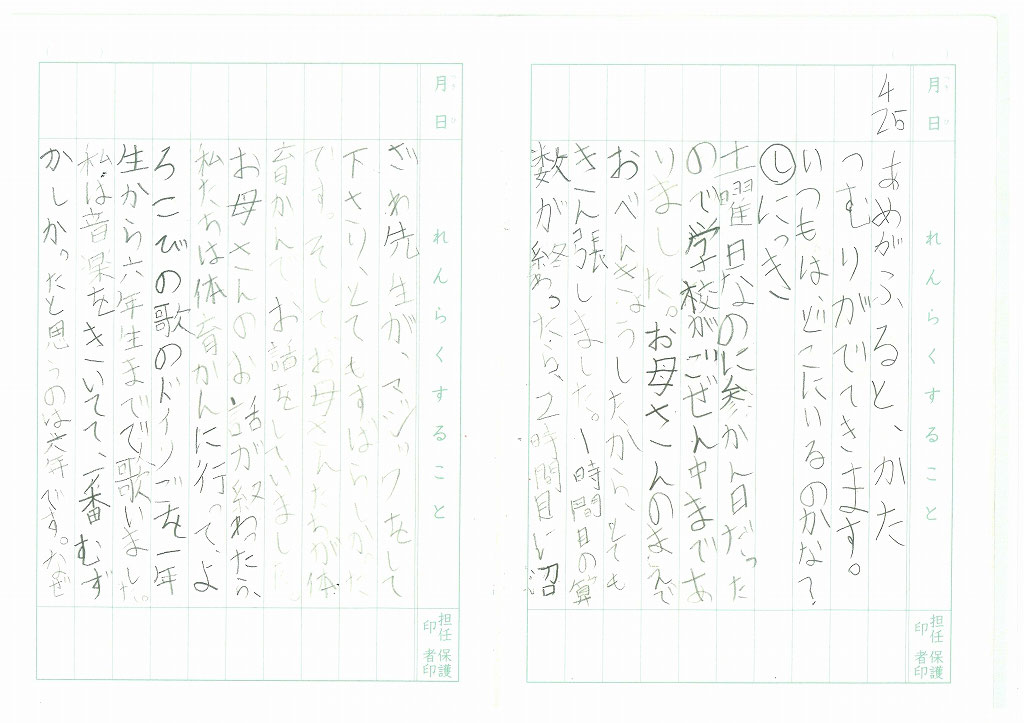 月日
れんらくすること
担任印
保護者印
4/25
あめがふると、かた
つむりがでてきます。
いつもは、どこにいるのかな?
し にっき
土曜日なのに参かん日だった
ので学校がごぜん中まであ
りました。お母さんのまえで
おべんきょうしたから、とても
きん張しました。1時間目の算
数が終わったら、2時間目に沼
月日
れんらくすること
担任印
保護者印
ざわ先生が、マジックをして
下さり、とてもすばらしかった
です。そして、お母さんたちが体
育かんで お話をしていました。
お母さんのお話が終わったら、
私たちは体育かんに行って、よ
ろこびの歌のドイツごを一年
生から六年生までで歌いました。
私は音楽をきいてて、一番むず
かしかったと思うのは六年です。なぜ